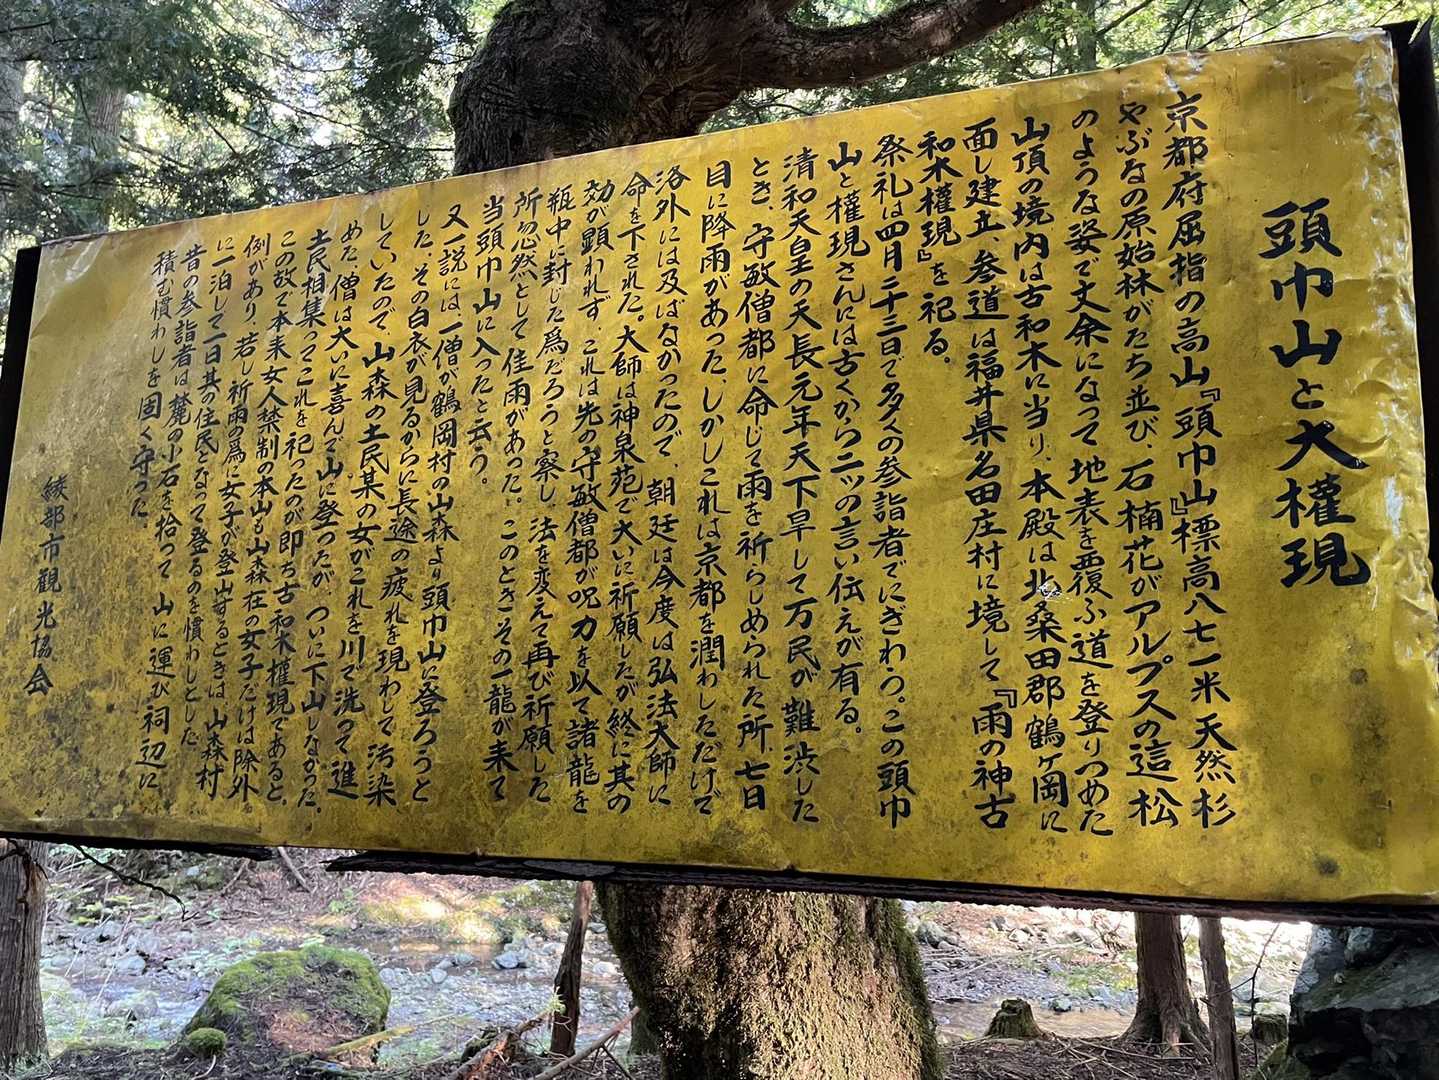 頭巾山と大權現
京都府屈指の高山『頭巾山』標高八七一米天然杉
やぶなの原始林がたち並び、石楠花がアルプスの這松
のような姿で丈余になって地表を覆ふ道を登りつめた
山頂の境内は古和木に当り、本殿は北桑田郡鶴ヶ岡に
面し建立、参道は福井県名田庄村に境して『雨の神古
和木權現』を祀る。
祭礼は四月二十三日で多くの参詣者でにぎわう。この頭巾
山と權現さんには古くから二ッの言い伝えが有る。
清和天皇の天長元年天下旱して万民が難渋した
とき、守敏僧都に命じて雨を祈らしめられた所、七日
目に降雨があった、しかしこれは京都を潤わしただけで
洛外には及ばなかったので、朝廷は今度は弘法大師に
命を下された。大師は神泉苑で大いに祈願したが終に其の
効が顕われず、これは先の守敏僧都が呪力を以て諸龍を
瓶中に封じた爲だろうと察し、法を変えて再び祈願した
所忽然として佳雨があった。このときその一龍が来て
当頭巾山に入ったと云う。
又一説には一僧が鶴岡村の山森より頭巾山に登ろうと
した、その白衣が見るからに長途の疲れを現わして汚染
していたので、山森の土民某の女がこれを川で洗って進
めた、僧は大いに喜んで山に登ったが、ついに下山しなかった、
土民相集ってこれを祀ったのが即ち古和木權現であると、
この故で本来女人禁制の本山も山森在の女子だけは除外
例があり、若し祈雨の爲に女子が登山するときは、山森村
に一泊して一日其の住民となって登るのを慣わしとした
昔の参詣者は麓の小石を拾って山に運び祠辺に
積む慣わしを固く守った。
綾部市観光協会